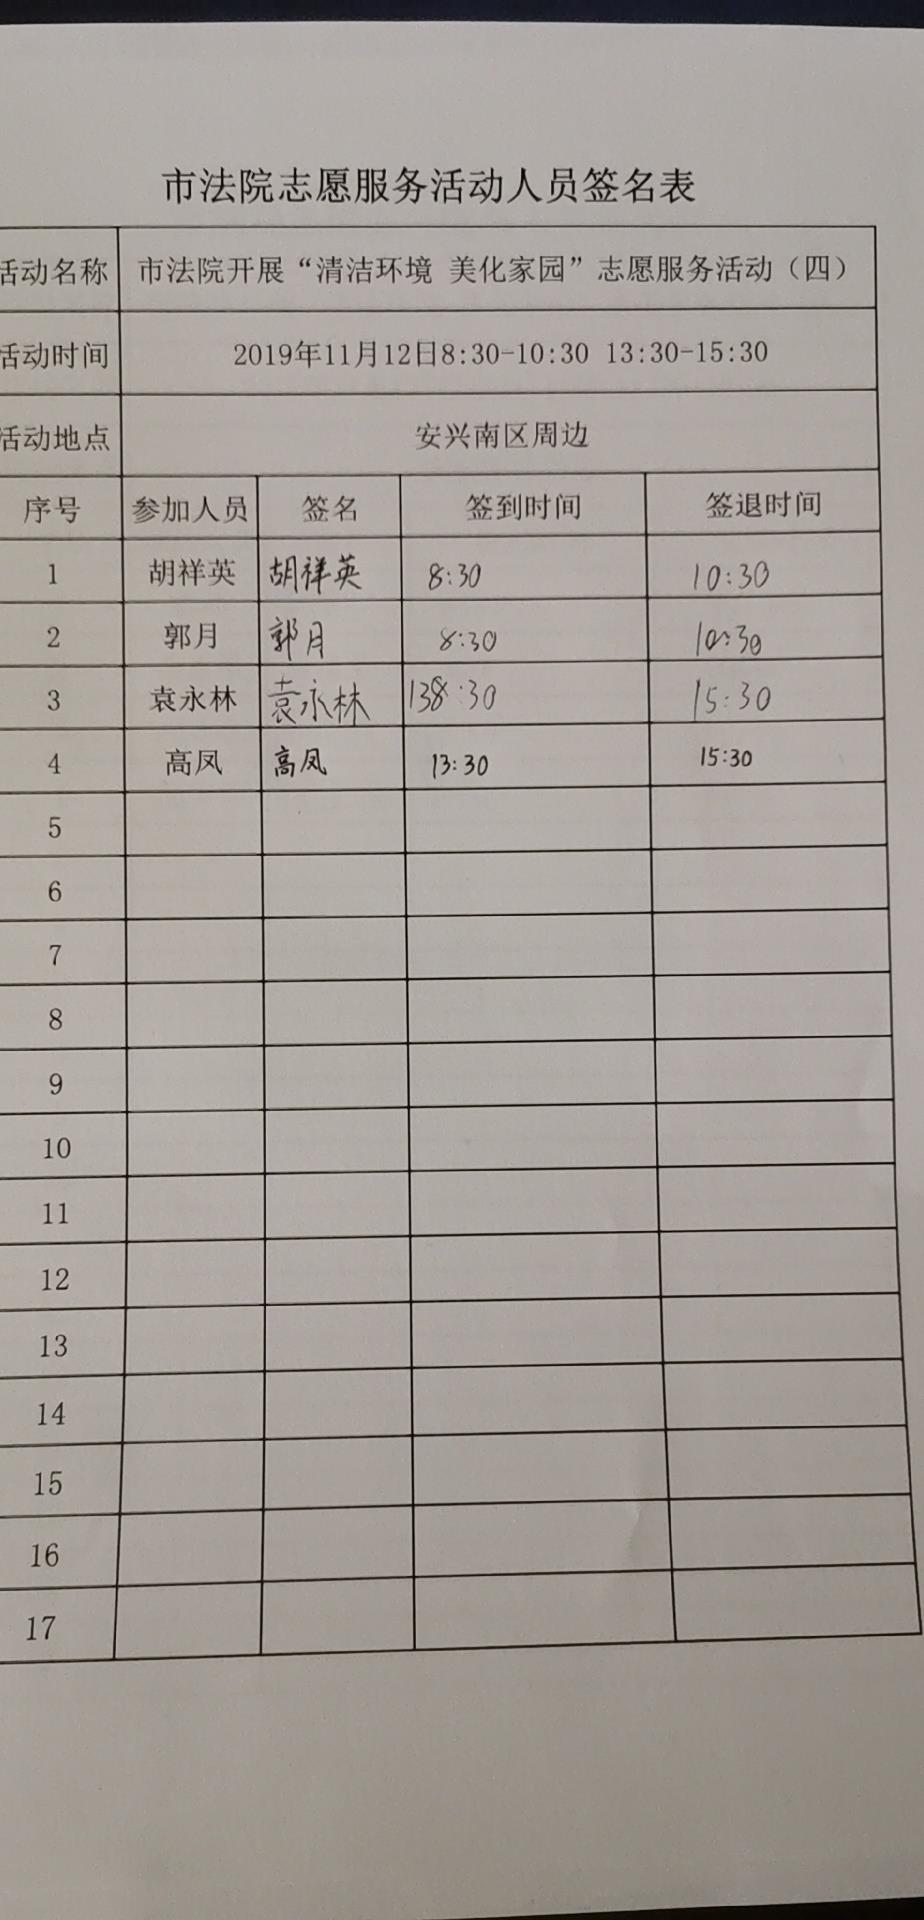 市法院志愿服务活动人员签名表
活动名称 市法院开展“清洁环境 美化家园”志愿服务活动（四）
活动时间 2019年11月12日8:30-10:30 13:30-15:30
活动地点 安兴南区周边
序号 参加人员 签名 签到时间 签退时间
1 胡祥英 胡祥英 8:30 10:30
2 郭月 郭月 8:30 10:30
3 袁永林 袁永林 138:30 15:30
4 高凤 高凤 13:30 15:30
5
6
7
8
9
10
11
12
13
14
15
16
17